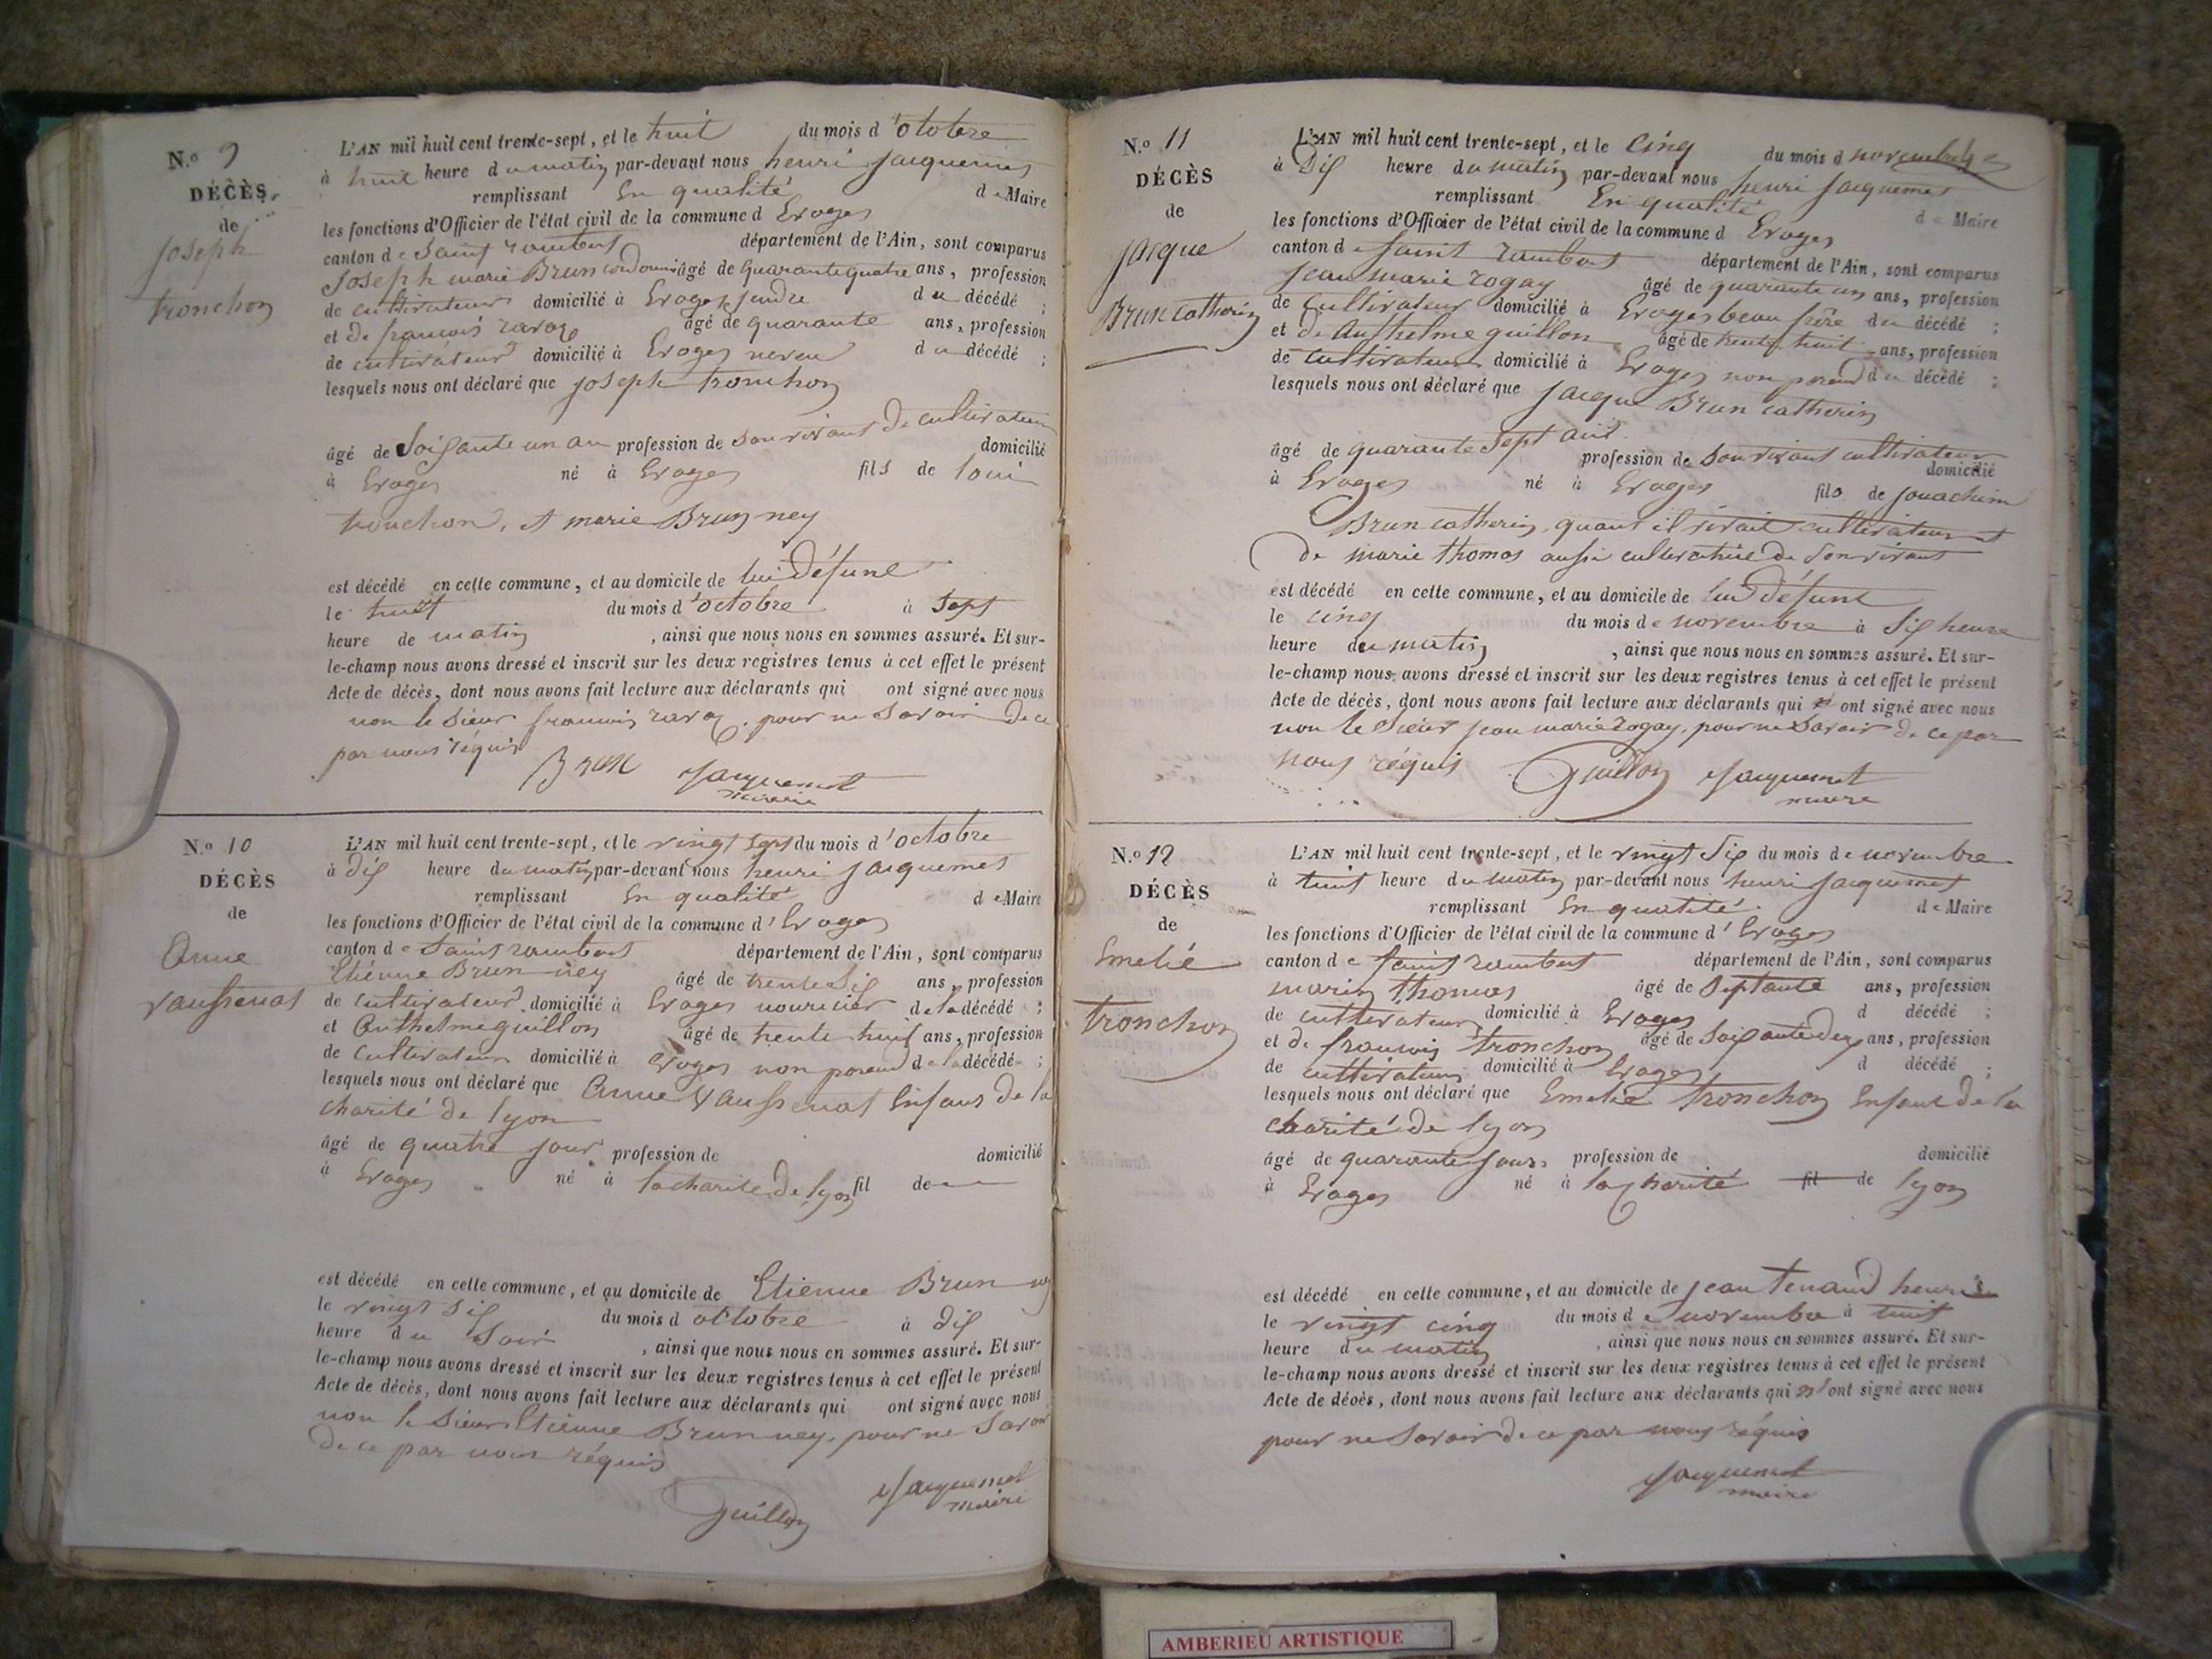 N.o 9
DÉCÈS
de
joseph
tronchon
L'AN mil huit cent trente-sept, et le huit du mois d'octobre
à huit heure du matin par-devant nous henri jacquemet
remplissant En qualité de Maire
les fonctions d'Officier de l'état civil de la commune d Evoges
canton de Saint rambert département de l'Ain, sont comparus
joseph marie Brun cordonnier âgé de quarante quatre ans, profession
de cultivateur domicilié à Evoges jendre du décédé ;
et de francois ravaz âgé de quarante ans, profession
de cultivateur domicilié à Evoges neveu du décédé ;
lesquels nous ont déclaré que joseph tronchon
âgé de Soisante un an profession de Son vivant de cultivateur domicilié
à Evoges né à Evoges fils de loui
tronchon, et marie Brun ney
est décédé en cette commune, et au domicile de lui défunt
le huit du mois d'octobre à Sept
heure de matin , ainsi que nous nous en sommes assuré. Et sur-
le-champ nous avons dressé et inscrit sur les deux registres tenus à cet effet le présent
Acte de décès, dont nous avons fait lecture aux déclarants qui ont signé avec nous
non le Sieur francois ravaz, pour ne Savoir de ce
par nous réquis
Brun jacquemet
maire
N.o 10
DÉCÈS
de
Anne
Vaussenat
L'AN mil huit cent trente-sept, et le vingt sept du mois d'octobre
à dis heure du matin par-devant nous henri jacquemet
remplissant En qualité de Maire
les fonctions d'Officier de l'état civil de la commune d'Evoges
canton de Saint rambert département de l'Ain, sont comparus
Etiènne Brun ney âgé de trente Sis ans, profession
de Cultivateur domicilié à Evoges nouricier de la décédé ;
et Anthelme guillon âgé de trente huit ans, profession
de Cultivateur domicilié à Evoges non parend de la décédé ;
lesquels nous ont déclaré que Anne Vaussenat Enfans de la
charité de lyon
âgé de quatre jour profession de domicilié
à Evoges né à la charité de lyon fil de
est décédé en cette commune, et au domicile de Etienne Brun ney
le vingt Sis du mois d octobre à dis
heure du Soir , ainsi que nous nous en sommes assuré. Et sur-
le-champ nous avons dressé et inscrit sur les deux registres tenus à cet effet le présent
Acte de décès, dont nous avons fait lecture aux déclarants qui ont signé avec nous
non le Sieur Etienne Brun ney, pour ne Savoir
de ce par nous réquis
Guillon jacquemet
maire
N.o 11
DÉCÈS
de
jacque
Brun catherin
L'AN mil huit cent trente-sept, et le Cinq du mois d novembre
à Dis heure du matin par-devant nous henri jacquemet
remplissant En qualité de Maire
les fonctions d'Officier de l'état civil de la commune d Evoges
canton de Saint rambert département de l'Ain, sont comparus
jean marie rogay âgé de quarante un ans, profession
de Cultivateur domicilié à Evoges beau frêre du décédé ;
et de Anthelme guillon âgé de trente huit ans, profession
de Cultivateur domicilié à Evoges non parend du décédé ;
lesquels nous ont déclaré que jacque Brun catherin
âgé de quarante Sept ans profession de Son vivant cultivateur domicilié
à Evoges né à Evoges fils de jouachim
Brun catherin, quant il vivait cultivateur et
de marie thomas aussi cultivatrice de Son vivant
est décédé en cette commune, et au domicile de lui défunt
le cinq du mois de novembre à Sis heure
heure du matin , ainsi que nous nous en sommes assuré. Et sur-
le-champ nous avons dressé et inscrit sur les deux registres tenus à cet effet le présent
Acte de décès, dont nous avons fait lecture aux déclarants qui ont signé avec nous
non le Sieur jean marie rogay, pour ne Savoir de ce par
nous réquis Guillon jacquemet
maire
N.o 12
DÉCÈS
de
Emelié
tronchon
L'AN mil huit cent trente-sept, et le vingt Sis du mois de novembre
à huit heure du matin par-devant nous henri jacquemet
remplissant En qualité de Maire
les fonctions d'Officier de l'état civil de la commune d'Evoges
canton de Saint rambert département de l'Ain, sont comparus
marin thomas âgé de Septante ans, profession
de cultivateur domicilié à Evoges d décédé ;
et de francois tronchon âgé de Soisante dex ans, profession
de cultivateur domicilié à Evoges d décédé ;
lesquels nous ont déclaré que Emelié tronchon Enfant de la
charité de lyon
âgé de quarante jours profession de domicilié
à Evoges né à la charité fil de lyon
est décédé en cette commune, et au domicile de jean tenand henri
le vingt cinq du mois de novembre à huit
heure du matin , ainsi que nous nous en sommes assuré. Et sur-
le-champ nous avons dressé et inscrit sur les deux registres tenus à cet effet le présent
Acte de décès, dont nous avons fait lecture aux déclarants qui n'ont signé avec nous
pour ne Savoir de ce par nous réquis
jacquemet
maire
AMBERIEU ARTISTIQUE